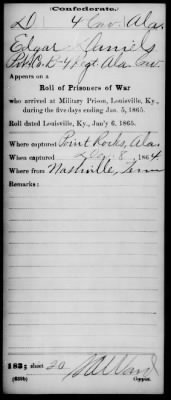 (Confederate.)
D 4 Cav. Ala.
Edgar Daniels
Pvt. Co. D- 4 Regt Ala. Cav.
Appears on a
Roll of Prisoners of War
who arrived at Military Prison, Louisville, Ky.,
during the five days ending Jan. 5, 1865.
Roll dated Louisville, Ky., Jan'y 6, 1865.
Where captured Point Rocks, Ala.
When captured 8, 1864
Where from Nashville, Tenn
Remarks:
sheet 20
(639b) Copyist.